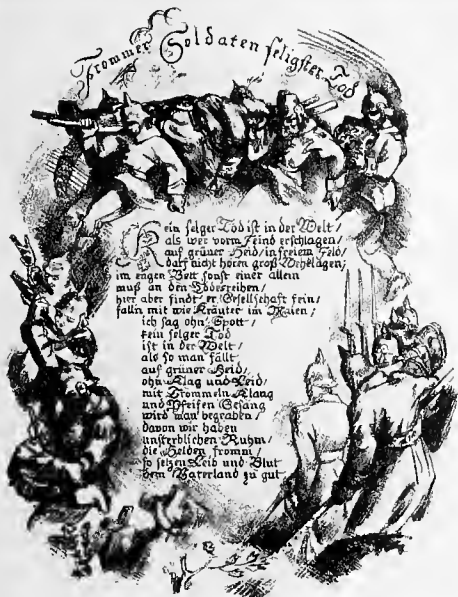 Frommer Soldaten seligster Tod
Kein selger Tod ist in der Welt/
als wer vorm Feind erschlagen/
auf grüner Heid/ in freiem Feld/
darf nicht hören groß Wehklagen;
im engen Bett sonst einer allein
muß an den Todesreihen/
hier aber findt er Gesellschaft fein/
falln mit wie Kräuter im Maien/
ich sag ohn Spott/
kein selger Tod
ist in der Welt/
als so man fällt
auf grüner Heid/
ohn Klag und Leid/
mit Trommeln Klang
und Pfeifen Gesang
wird man begraben/
davon wir haben
unsterblichen Ruhm/
die Helden fromm/
so setzen Leib und Blut
dem Vaterland zu gut